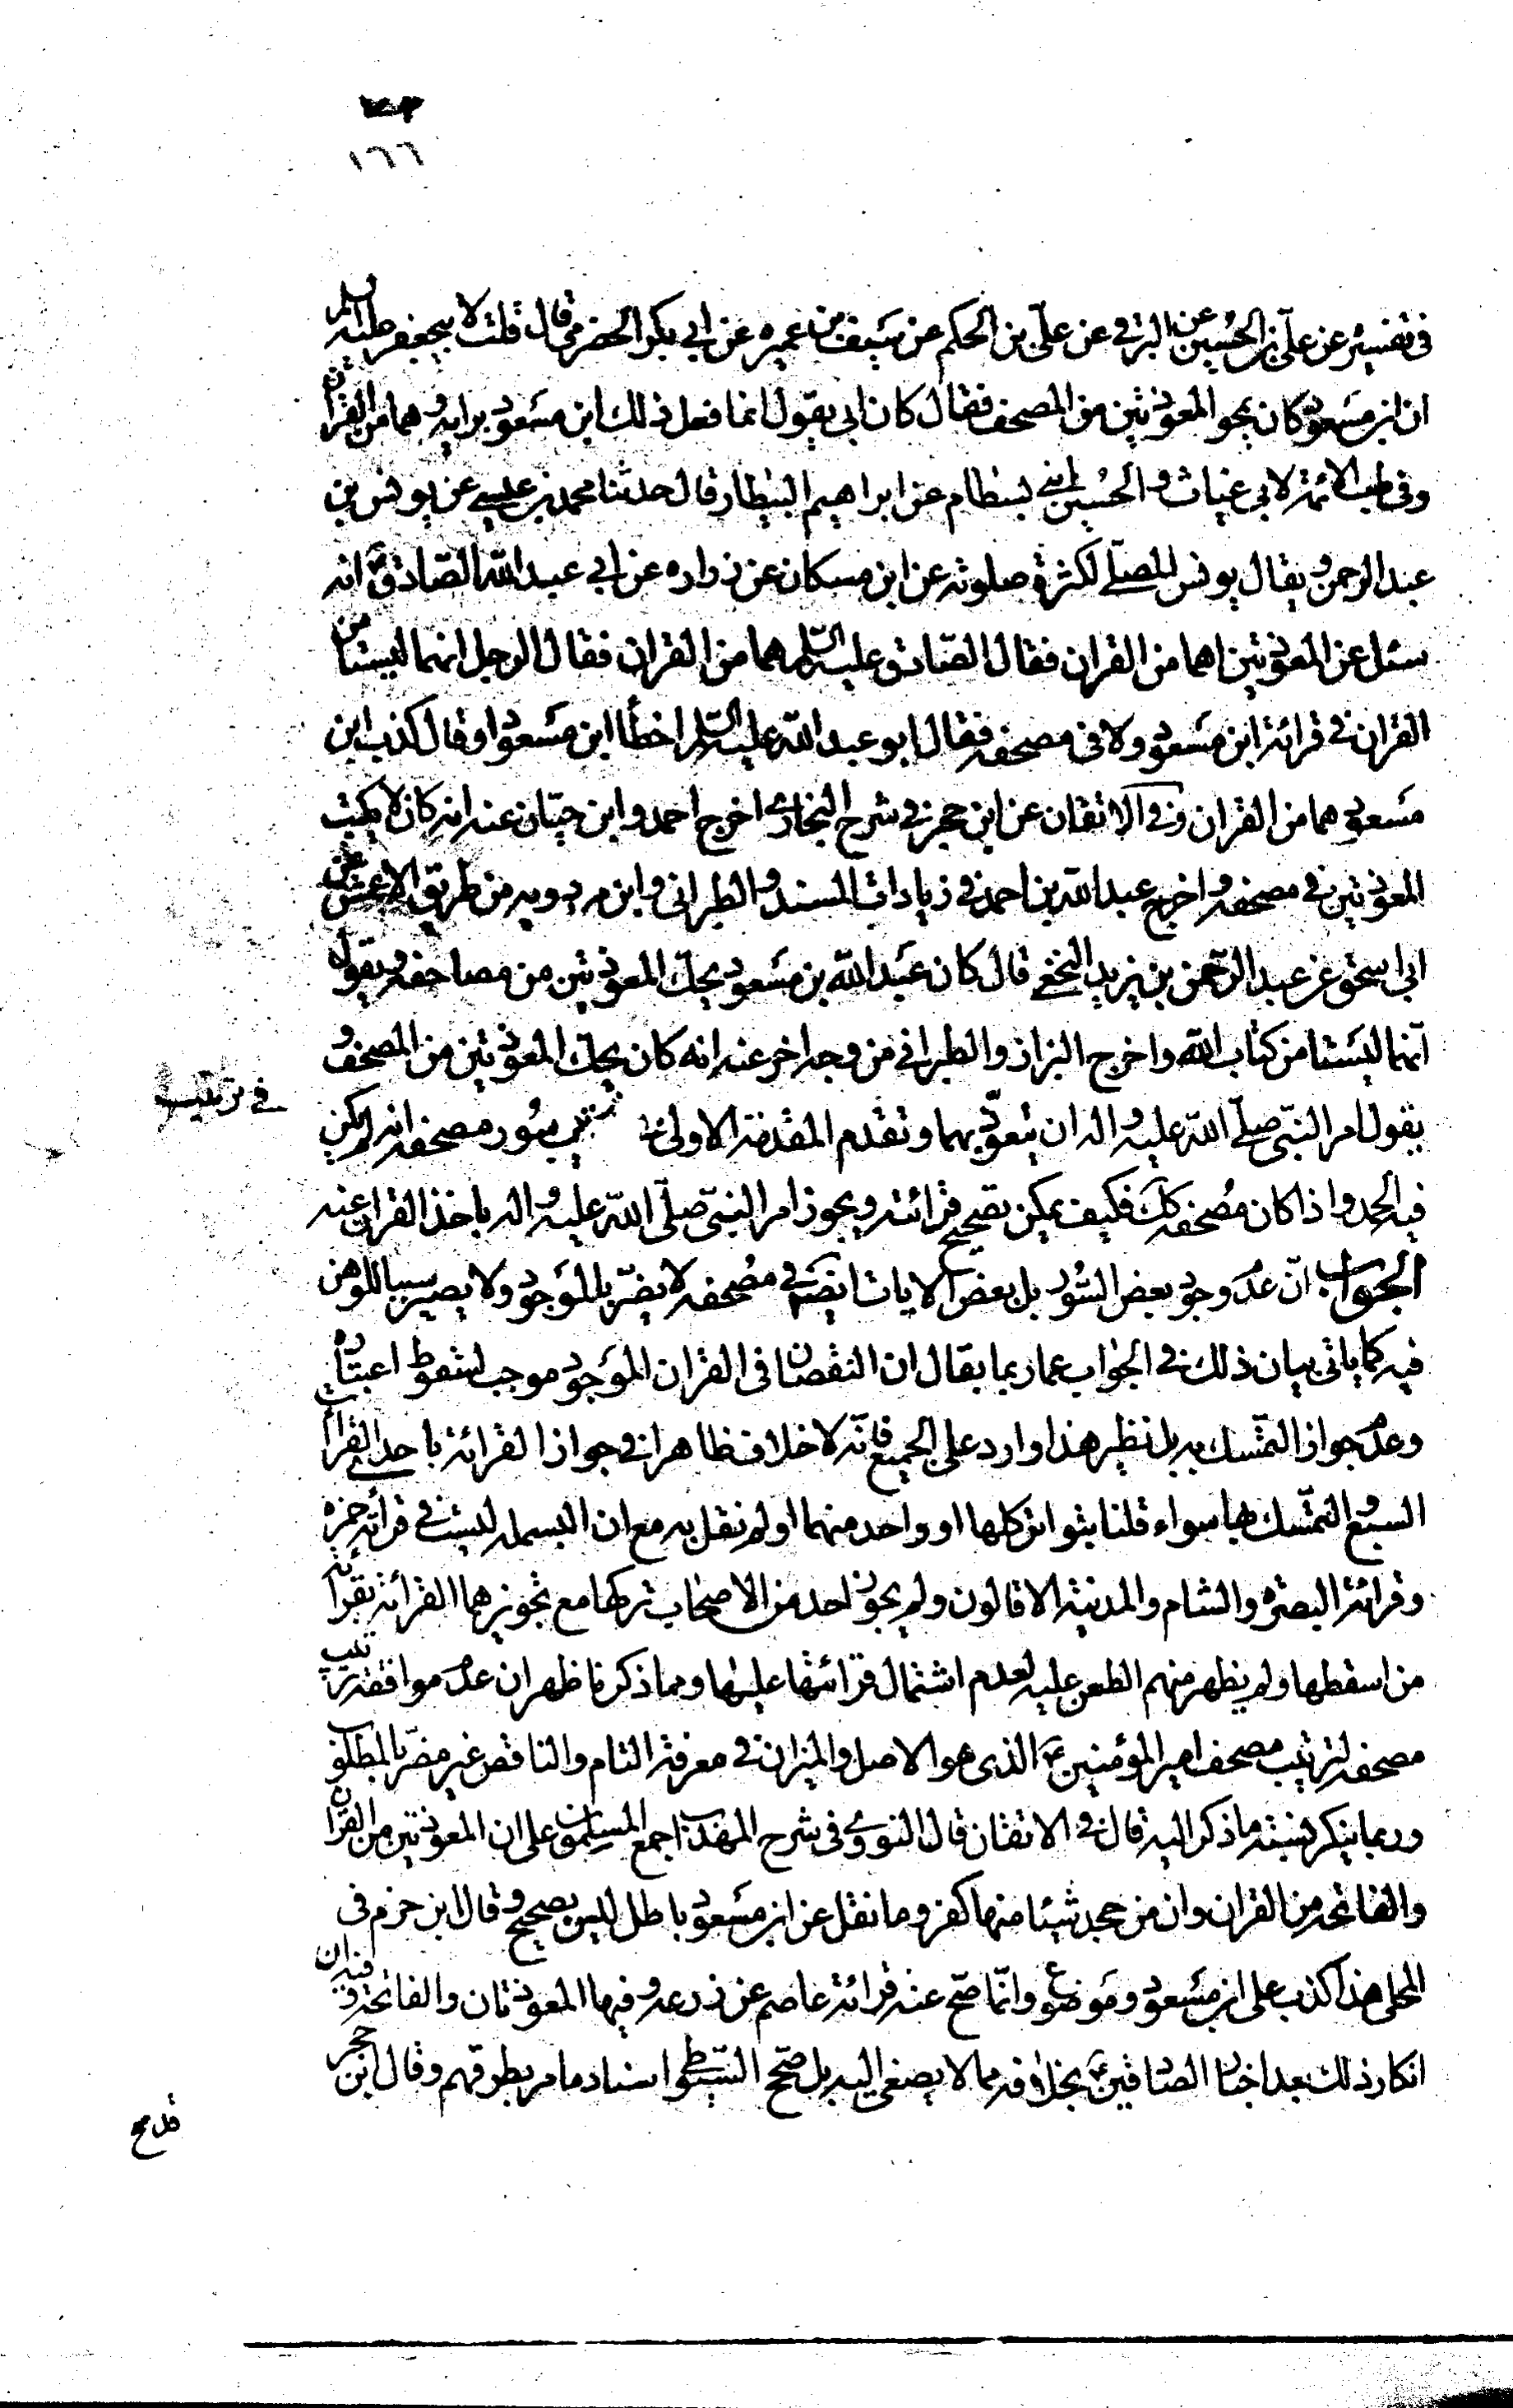 ١٦٦
فى تفسيره عن على بن الحسين عن البرقى عن على بن الحكم عن سيف بن عميره عن ابى بكر الحضرمى قال قلت لابيجعفر عليه السلم
ان ابن مسعود كان يمحو المعوذتين من المصحف فقال كان ابى يقول انما فعل ذلك ابن مسعود برايه وهما من القران
وفى طب الائمة لابى غياث والحسين ابنى بسطام عن ابراهيم البيطار قال حدثنا محمد بن عيسى عن يونس بن
عبد الرحمن ويقال يونس المصلى لكثرة صلوته عن ابن مسكان عن زراره عن ابى عبد الله الصادق ع انه
سئل عن المعوذتين اهما من القران فقال الصادق عليه السلم هما من القران فقال الرجل انهما ليستا من
القران فى قرائة ابن مسعود ولا فى مصحفه فقال ابو عبد الله عليه السلم اخطأ ابن مسعود او قال كذب ابن
مسعود هما من القران وفى الاتقان عن ابن حجر فى شرح البخارى اخرج احمد وابن حبان عنه انه كان لا يكتب
المعوذتين فى مصحفه واخرج عبد الله بن احمد فى زيادات المسند والطبرانى وابن مردويه من طريق الاعمش عن
ابى اسحق عن عبد الرحمن بن يزيد النخعى قال كان عبد الله بن مسعود يحك المعوذتين من مصاحفه ويقول
انهما ليستا من كتاب الله واخرج البزاز والطبرانى من وجه اخر عنه انه كان يحك المعوذتين من المصحف و
يقول امر النبى صلى الله عليه واله ان يتعوذ بهما وتقدم المقدمة الاولى فى ترتيب سور مصحفه انه لم يكن
فى ترتيب
فيه الحمد واذا كان مصحفه كك فكيف يمكن تصحيح قرائته ويجوز امر النبى صلى الله عليه واله باخذ القران عنه
الجواب ان عدم وجود بعض السور بل بعض الايات ايضا فى مصحفه لا يضر بالموجود ولا يصير سببا للوهن
فيه كما ياتى بيان ذلك فى الجواب عما ربما يقال ان النقصان فى القران الموجود موجب لسقوط اعتباره
وعدم جواز التمسك به بل نظير هذا وارد على الجميع فانه لا خلاف ظاهرا فى جواز القرائة باحدى القرأات
السبع والتمسك بها سواء قلنا بتواتر كلها او واحد منهما او لم نقل به مع ان البسمله ليست فى قرائة حمزه
وقرائة البصره والشام والمدينة الا قالون ولم يجوز احد من الاصحاب تركها مع تجويزهما القرائة بقرائة
من اسقطها ولم يظهر منهم الطعن عليه لعدم اشتمال قرائتها عليها ومما ذكرنا ظهر ان عدم موافقة ترتيب
مصحفه لترتيب مصحف امير المؤمنين ع الذى هو الاصل والميزان فى معرفة التام والناقص غير مضر بالمطلوب
وربما ينكر نسبة ما ذكر اليه قال فى الاتقان قال النووى فى شرح المهذب اجمع المسلمون على ان المعوذتين من القران
والفاتحه من القران وان من جحد شيئا منها كفر وما نقل عن ابن مسعود باطل ليس بصحيح وقال ابن حزم فى
المحلى هذا كذب على ابن مسعود وموضوع وانما صح عنه قرائة عاصم عن زر عنه وفيها المعوذتان والفاتحة وفيه ان
انكار ذلك بعد اخبار الصادقين ع بخلافه مما لا يصغى اليه بل صحح السيوطى اسناد ما مر بطرقهم وقال ابن حجر